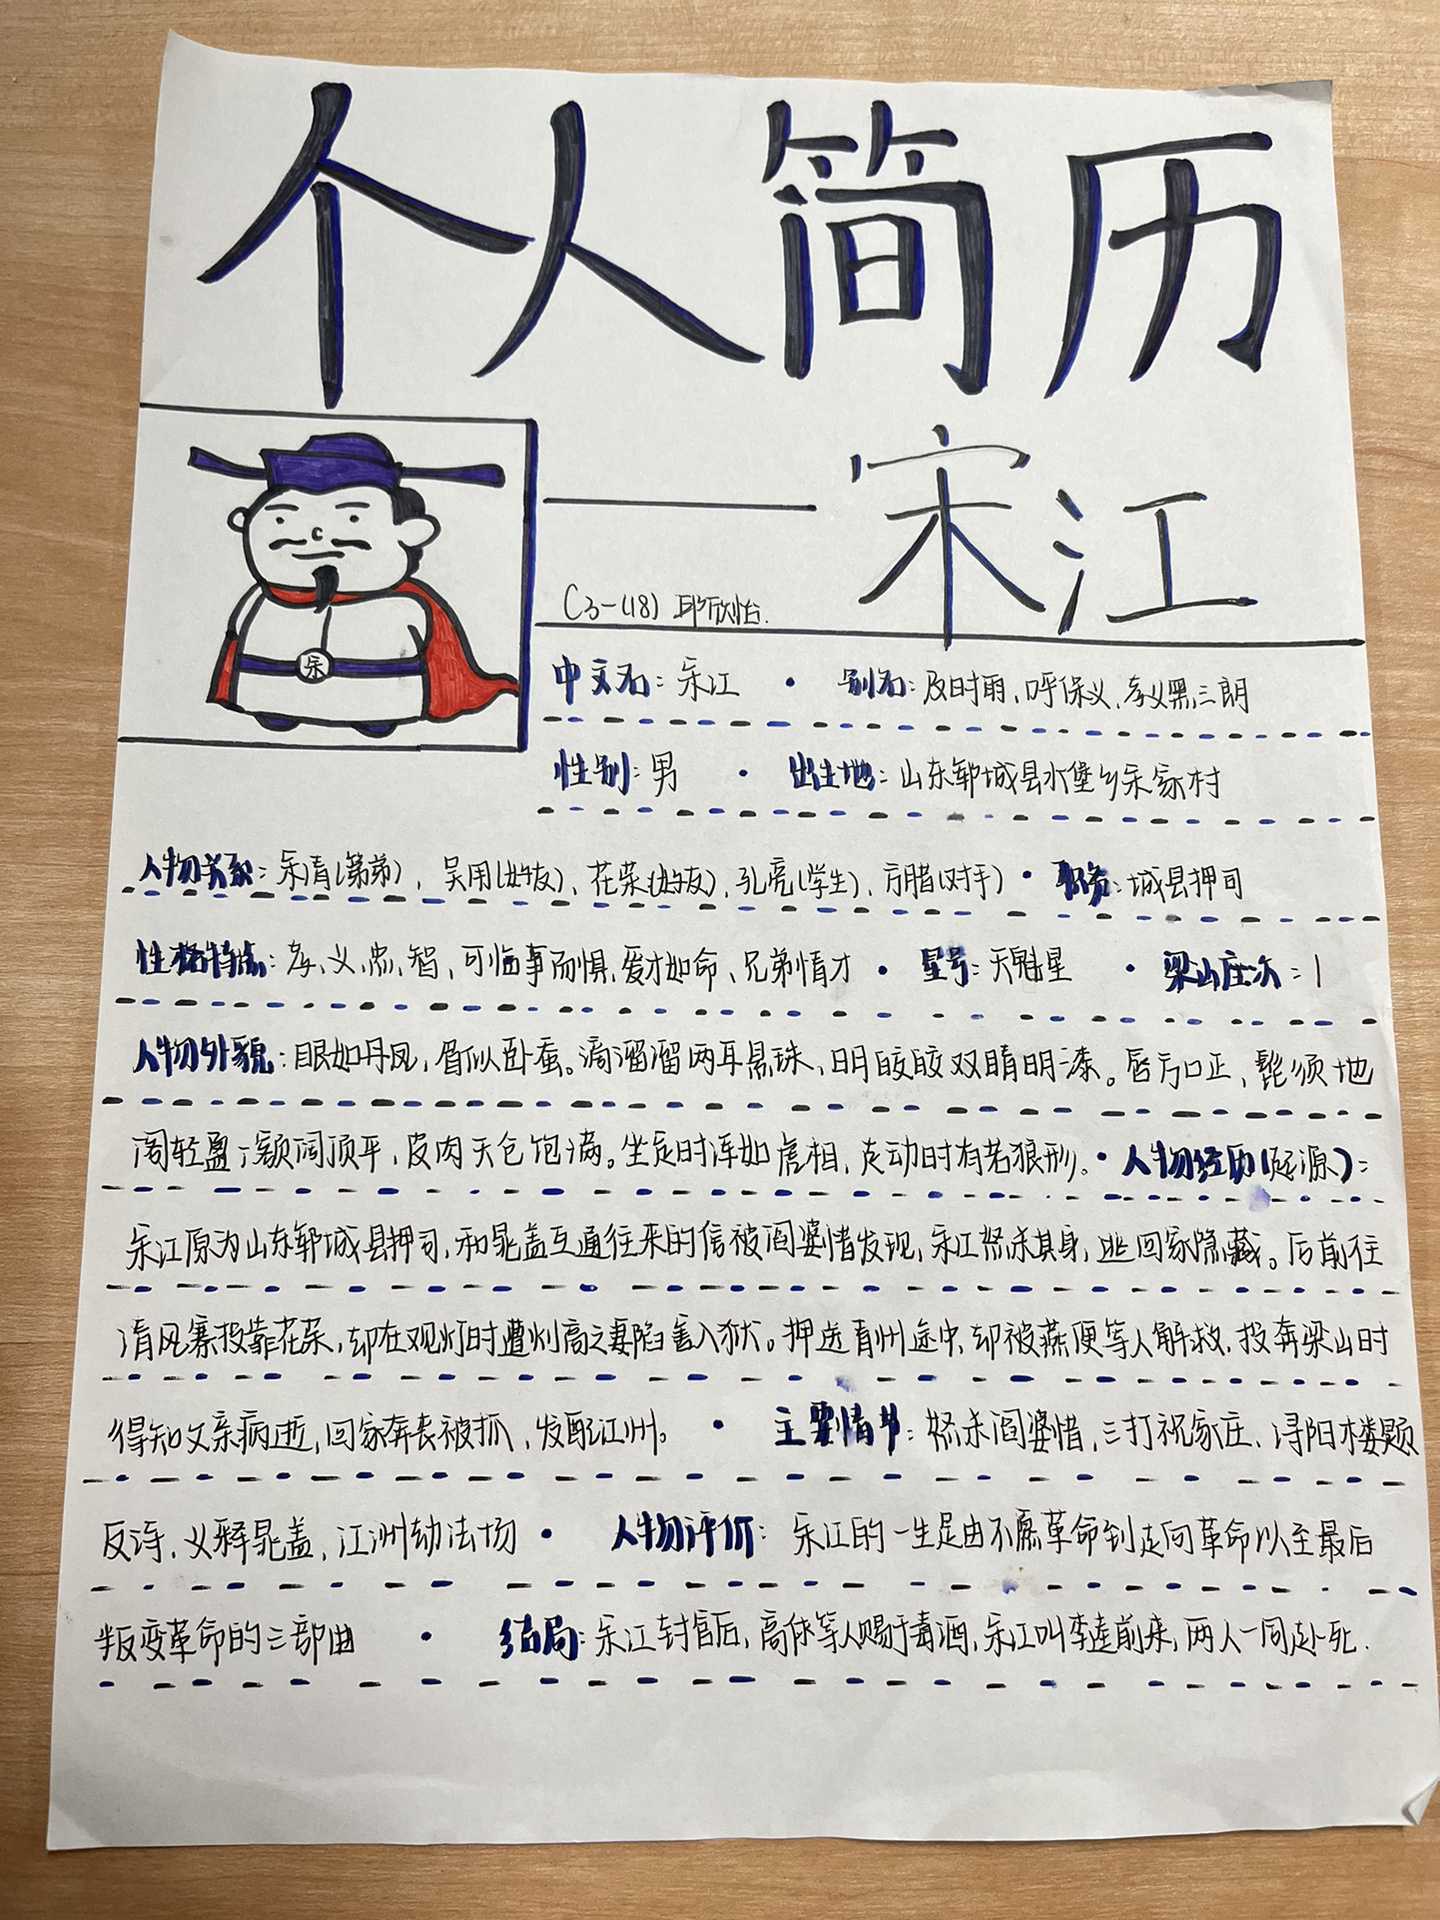 个人简历
——宋江
(3-(18) 邱欣怡.
宋
中文名：宋江 · 别名：及时雨、呼保义、孝义黑三朗
性别：男 · 出生地：山东郓城县水堡乡宋家村
人物关系：宋清(弟弟)、吴用(好友)、花荣(好友)、孔亮(学生)、方腊(对手) · 职务：城县押司
性格特点：孝、义、忠、智、可临事而惧、爱才如命、兄弟情才 · 星号：天魁星 · 梁山座次：1
人物外貌：眼如丹凤，眉似卧蚕。滴溜溜两耳悬珠，明皎皎双睛明漆。唇方口正，髭须地
阁轻盈，额阔顶平，皮肉天仓饱满。坐定时浑如虎相，走动时有若狼形。· 人物经历(起源)：
宋江原为山东郓城县押司，和晁盖互通往来的信被阎婆惜发现，宋江怒杀其身，逃回家隐藏。后前往
清风寨投靠花荣，却在观灯时遭刘高之妻陷害入狱。押送青州途中，却被燕顺等人解救，投奔梁山时
得知父亲病逝，回家奔丧被抓，发配江州。 · 主要情节：怒杀阎婆惜、三打祝家庄、浔阳楼题
反诗、义释晁盖、江洲劫法场 · 人物评价：宋江的一生是由不愿革命到走向革命以至最后
叛变革命的三部曲 · 结局：宋江封官后，高俅等人赐于毒酒，宋江叫李逵前来，两人一同赴死.